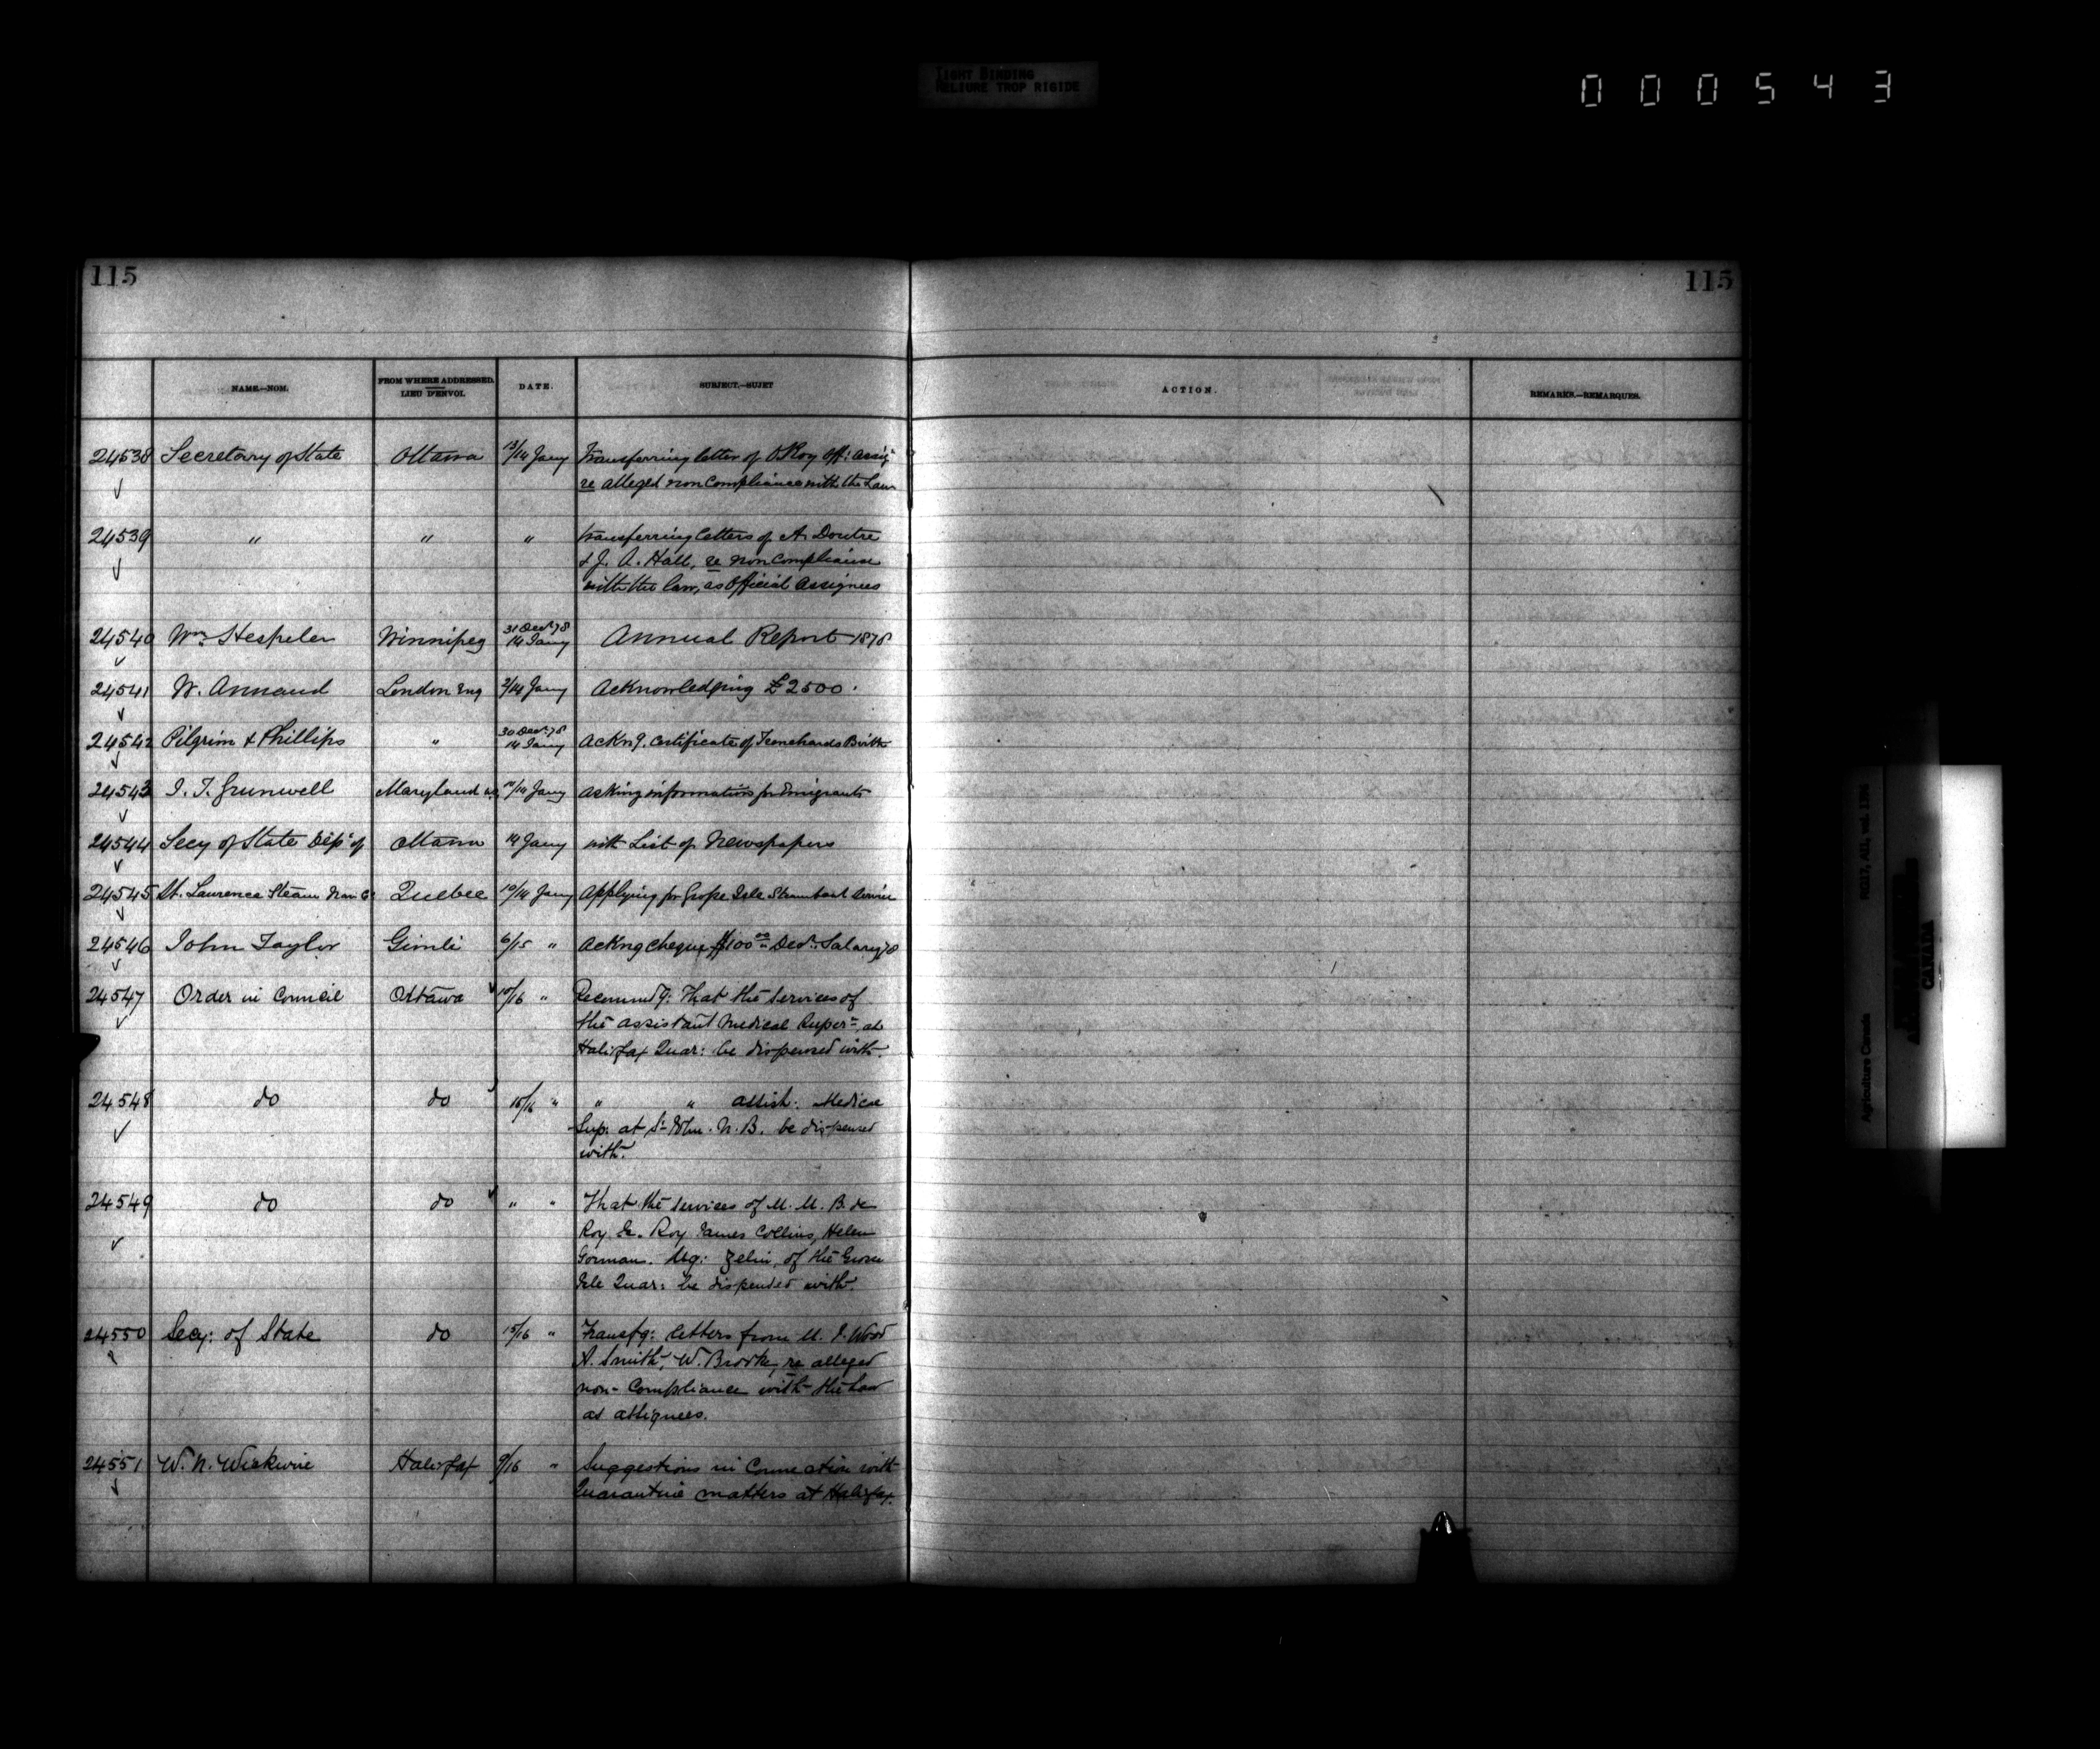 TIGHT BINDING
RELIURE TROP RIGIDE
000543
115
115
NAME.—NOM.
FROM WHERE ADDRESSED.
LIEU D'ENVOI.
DATE.
SUBJECT.—SUJET
ACTION.
REMARKS.—REMARQUES.
24538 Secretary of State Ottawa 13/14 Jany Transferring letter of Roy Off: Assig
re alleged non Compliance with the Law
24539 " " " Transferring letters of A. Doutre
& J. A. Hall, re non Compliance
with the law, as Official Assignees
24540 Wm Hespeler Winnipeg 31 Decr 78
14 Jany Annual Report 1878
24541 W. Annand London Eng 2/14 Jany Acknowledging £2500.
24542 Pilgrim & Phillips " 30 Decr 78
14 Jany Ackng. Certificate of Birth
24543 I. T. Grunwell Maryland 10/14 Jany Asking information for Emigrants
24544 Secy of State Dept of Ottawa 14 Jany with List of Newspapers
24545 St. Laurence Steam Nav Co Quebec 10/14 Jany Applying for Grosse Isle Steamboat Service
24546 John Taylor Gimli 6/15 " Ackng Cheque $100 00 Decr: Salary 78
24547 Order in Council Ottawa 10/16 " Recommdg: That the services of
the assistant Medical Super- at
Halifax Quar: be dispensed with.
24548 do do 15/16 " " " assist: Medical
Sup: at St John. N.B. be dispensed
with.
24549 do do " " That the services of M. M. B. de
Roy Roy James Collins, Helen
Gorman. Mg: of the Grosse
Isle Quar: be dispensed with.
24550 Secy: of State do 15/16 " Transfg: letters from M. I. Wood
A. Smith, W. Brooke, re alleged
non-Compliance with the Law
as assignees.
24551 W. N. Wickwire Halifax 9/16 " Suggestions in Connection with
Quarantine matters at Halifax.
RG17, AII, vol. 1396
Agriculture Canada
CANADA